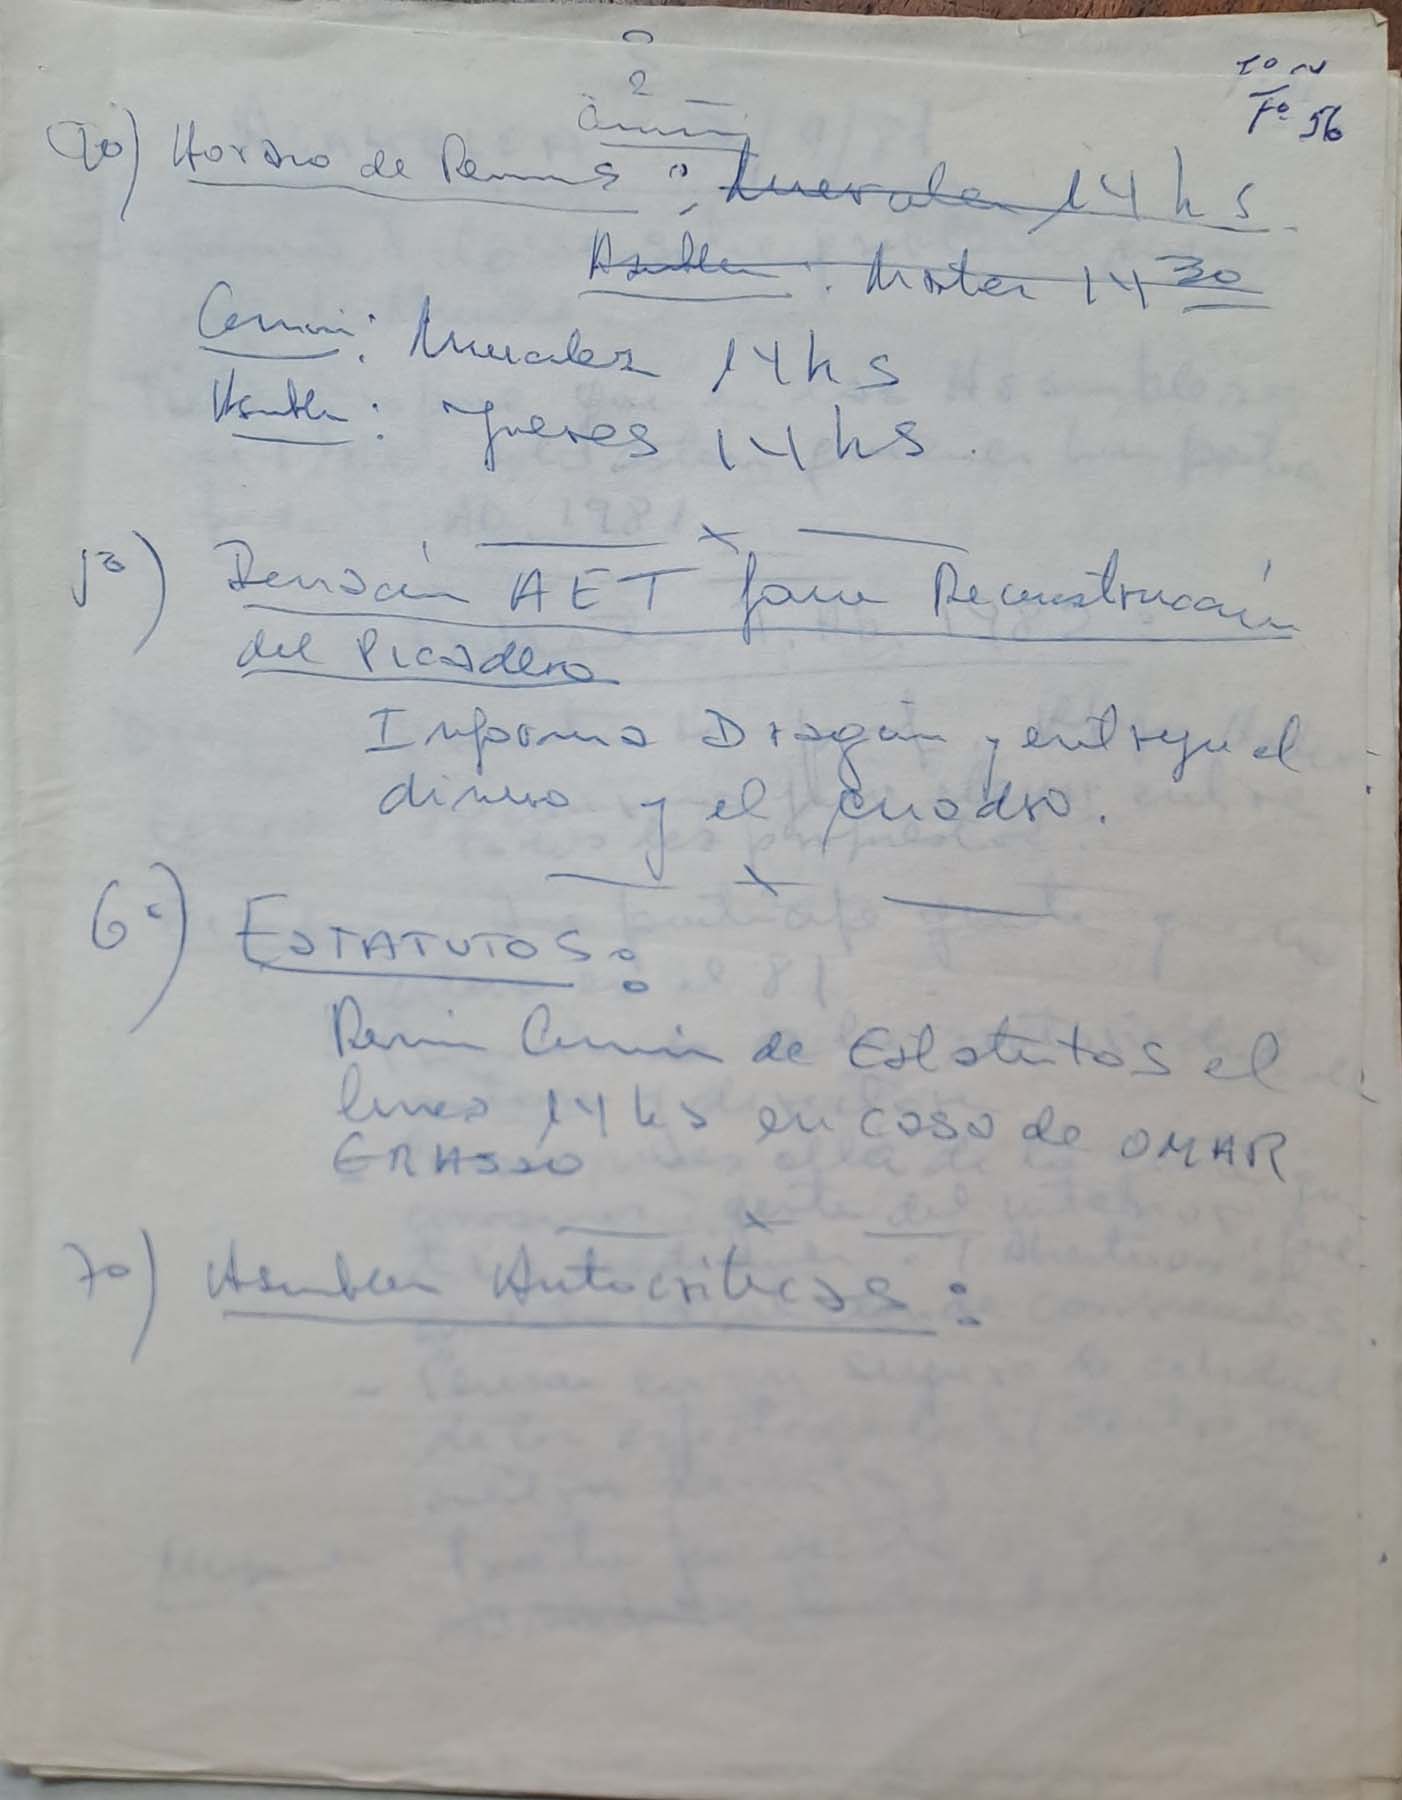 2
Tº N
Fº 56
4º) Horario de Reunions: Miercoles 14 hs
Asamblea: Martes 14 30
Comisión: Miercoles 14 hs
Asamblea: Jueves 14 hs.
5º) Donación AET para Reconstrucción
del Picadero
Informa Dragún y entrega el
dinero y el cuadro.
6º) ESTATUTOS:
Reunión Comisión de Estatutos el
lunes 14 hs en casa de OMAR
GRASSO
7º) Asamblea Autocríticas: